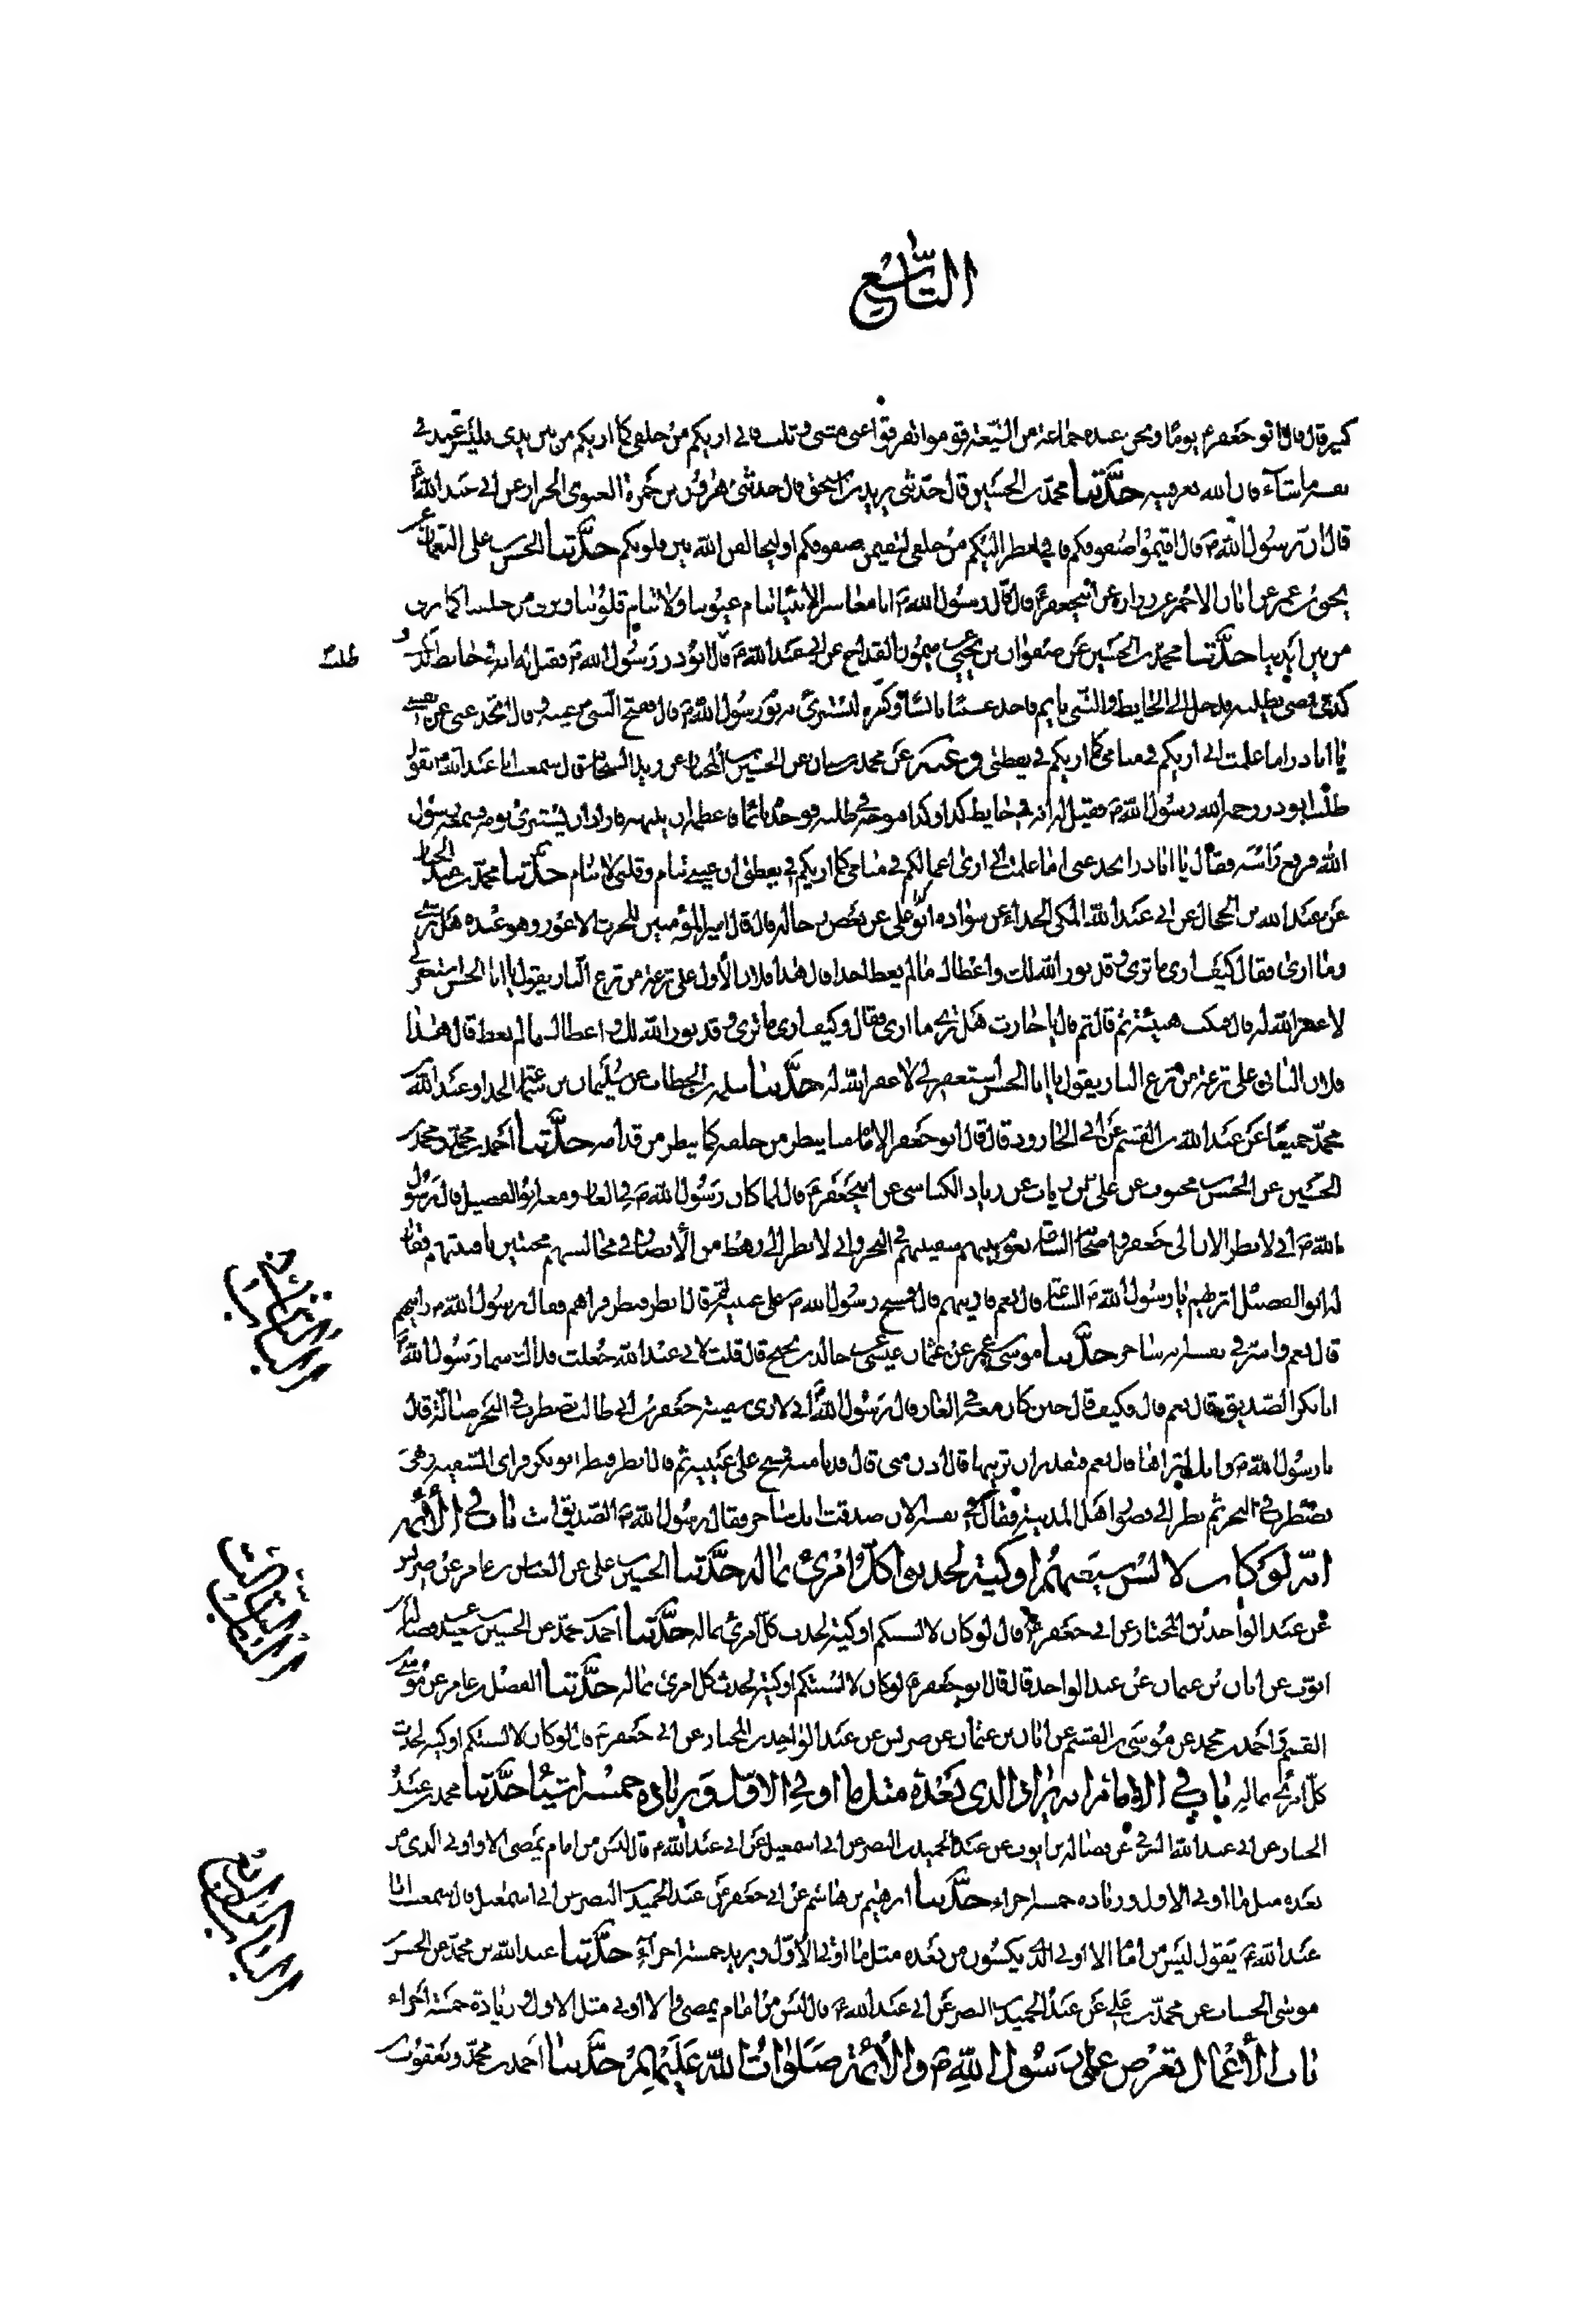 التاسع
كبير قال قال ابو جعفر ع يوما ونحن عنده جماعة من الشيعة قوموا تفرقوا عنى مثنى وثلث فانى اريكم من خلفى كما اريكم من بين يدى فليسر عبد فى
نفسه ما شآء فان الله يعرفنيه حدثنا محمد بن الحسين قال حدثنى يزيد بن اسحق قال حدثنى هرون بن حمزة الغنوى عن ابى عبد الله ع
قال ان رسول الله ص قال اقيموا صفوفكم فانى انظر اليكم من خلفى لتقيمن صفوفكم او ليخالفن الله بين قلوبكم حدثنا الحسن بن على النعمان عن
يحيى بن عمر عن ابان الاحمر عن زرارة عن ابيجعفر ع قال قال رسول الله ص انا معاشر الانبياء تنام عيوننا ولا تنام قلوبنا ونرى من خلفنا كما نرى
من بين ايدينا حدثنا محمد بن الحسين عن صفوان بن يحيى عن ميمون القداح عن ابى عبد الله ع قال ابو ذر رسول الله ص فقيل له انه فى حايط كذا و
طلب
كذى فمضى يطلبه فدخل الى الحايط والنبى ص نايم فاخذ عسيبا يابسا وكسره ليستبرئ به نوم رسول الله ص قال ففتح النبى ص عينيه وقال اتخدعنى عن نفسى
يا ابا ذر اما علمت انى اريكم فى منامى كما اريكم فى يقظتى وعنه عن محمد بن سنان عن الحسين بن المختار عن زيد الشحام قال سمعت ابا عبد الله ع يقول
طلب ابو ذر رحمه الله رسول الله ص فقيل له انه فى حايط كذا وكذا فتوجه فى طلبه فوجده نائما فاعظمه ان ينبهه فاراد ان يستبرئ نومه فسمعه رسول
الله ص فرفع رأسه فقال يا ابا ذر اتخدعنى اما علمت انى ارى اعمالكم فى منامى كما اريكم فى يقظتى ان عينى تنام وقلبى لا تنام حدثنا محمد بن عبد الجبار
عن عبد الله بن الحجال عن ابى عبد الله المكى الحذاء عن سوادة ابو على عن بعض رجاله قال قال امير المؤمنين للحرث الاعور وهو عنده هل ترى
وما ارى فقال كيف ارى ما ترى وقد نور الله لك واعطاك ما لم يعط احدا قال هذا فلان الاول على ترعة من ترع النار يقول يا ابا الحسن استغفر لى
لا غفر الله له قال فمكث هنيئة ثم قال ثم قال يا حارث هل ترى ما ارى فقال وكيف ارى ما ترى وقد نور الله لك واعطاك ما لم يعط قال هذا
فلان الثانى على ترعة من ترع النار يقول يا ابا الحسن استغفر لى لا غفر الله له حدثنا سلمة بن الخطاب عن سليمان بن سماعة الحذاء وعبد الله بن
محمد جميعا عن عبد الله بن القسم عن ابى الجارود قال قال ابو جعفر الامام منا ينظر من خلفه كما ينظر من قدامه حدثنا احمد بن محمد ومحمد بن
الحسين عن الحسن بن محبوب عن على بن رياب عن زياد الكناسى عن ابيجعفر ع قال لما كان رسول الله ص فى الغار ومعه ابو الفصيل قال رسول
الله ص انى لانظر الان الى جعفر واصحابه الساعة تعوم بينهم سفينتهم فى البحر وانى لانظر الى رهط من الانصار فى مجالسهم محتبين بافنيتهم فقال
له ابو الفصيل اتريهم يا رسول الله ص الساعة قال نعم فارنيهم قال فمسح رسول الله ص على عينيه ثم قال انظر فنظر فراهم فقال رسول الله ص رايتهم
قال نعم واسر فى نفسه انه ساحر حدثنا موسى بن عمر عن عثمان بن عيسى عن خالد بن نجيح قال قلت لابى عبد الله جعلت فداك سما رسول الله ص
ابا بكر الصديق قال نعم قال فكيف قال حين كان معه فى الغار قال رسول الله ص انى لارى سفينة جعفر بن ابى طالب تضطرب فى البحر ضالة قال
يا رسول الله ص وانك لتراها قال نعم فتقدر ان ترينيها قال ادن منى قال فدنا منه فمسح على عينيه ثم قال انظر فنظر ابو بكر فراى السفينة وهى
تضطرب فى البحر ثم نظر الى قصور اهل المدينة فقال فى نفسه الان صدقت انك ساحر فقال رسول الله ص الصديق انت باب فى الأئمة
انه لو كان لالسنتهم اوكية لحدثوا كل امرئ بماله حدثنا الحسين بن على عن العباس بن عامر عن ضريس
عن عبد الواحد بن المختار عن ابى جعفر ع قال لو كان لالسنتكم اوكية لحدث كل امرئ بماله حدثنا احمد بن محمد عن الحسين بن سعيد عن فضالة بن
ايوب عن ابان بن عثمان عن عبد الواحد قال قال ابو جعفر ع لو كان لالسنتكم اوكية لحدث كل امرئ بماله حدثنا الفضل بن عامر عن موسى بن
القسم واحمد بن محمد عن موسى بن القسم عن ابان بن عثمان عن ضريس عن عبد الواحد بن المختار عن ابى جعفر ع قال لو كان لالسنتكم اوكية لحدث
كل امرئ بماله باب فى الامام انه يزاد الذى بعده مثل ما اوتى الاول وزيادة خمسة اجزاء حدثنا محمد بن عبد
الجبار عن ابى عبد الله البرقى عن فضالة بن ايوب عن عبد الحميد بن النضر عن ابى اسمعيل عن ابى عبد الله ع قال ليس من امام يمضى الا واوتى الذى من
بعده مثل ما اوتى الاول وزيادة خمسة اجزاء حدثنا ابرهيم بن هاشم عن ابى جعفر عن عبد الحميد بن النضر عن ابى اسمعيل قال سمعت ابا
عبد الله ع يقول ليس من امام الا اوتى الذى يكون من بعده مثل ما اوتى الاول ويزيد خمسة اجزآء حدثنا عبد الله بن محمد عن الحسن بن
موسى الخشاب عن محمد بن على عن عبد الحميد بن النضر عن ابى عبد الله ع قال ليس من امام يمضى الا اوتى مثل الاول وزيادة خمسة اجزاء
باب الأعمال تعرض على رسول الله ص والأئمة صلوات الله عليهم حدثنا احمد بن محمد ويعقوب بن
الباب الثانى
الباب الثالث
الباب الرابع